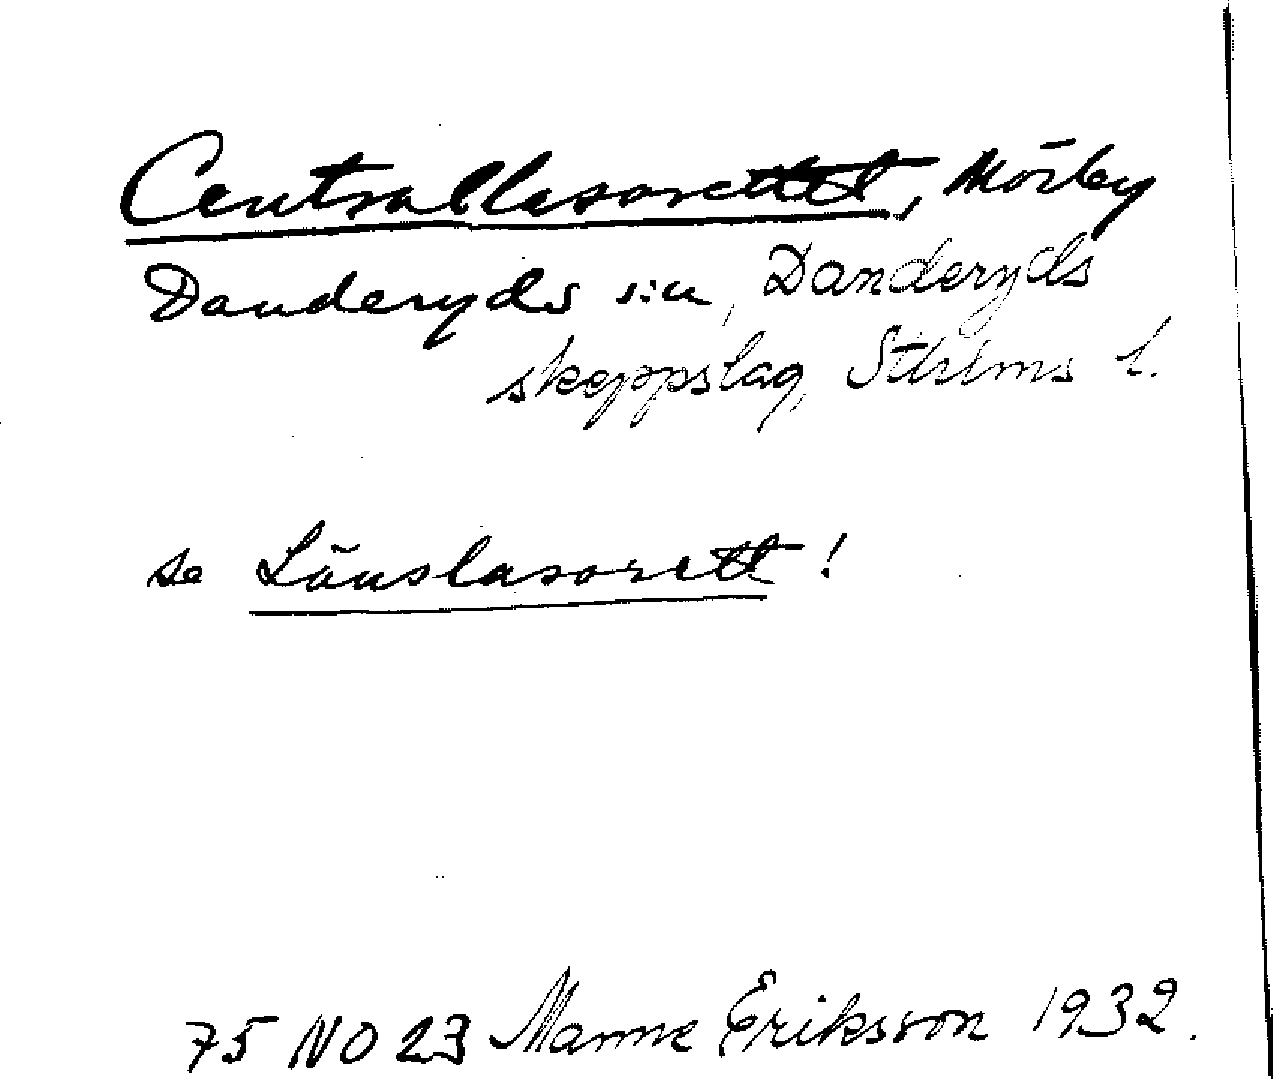 Centrallasarettet, Mörby
Danderyds sn, Danderyds
skeppslag, Sthlms l.
se Länslasarett!
75 NO 23 Manne Eriksson 1932.